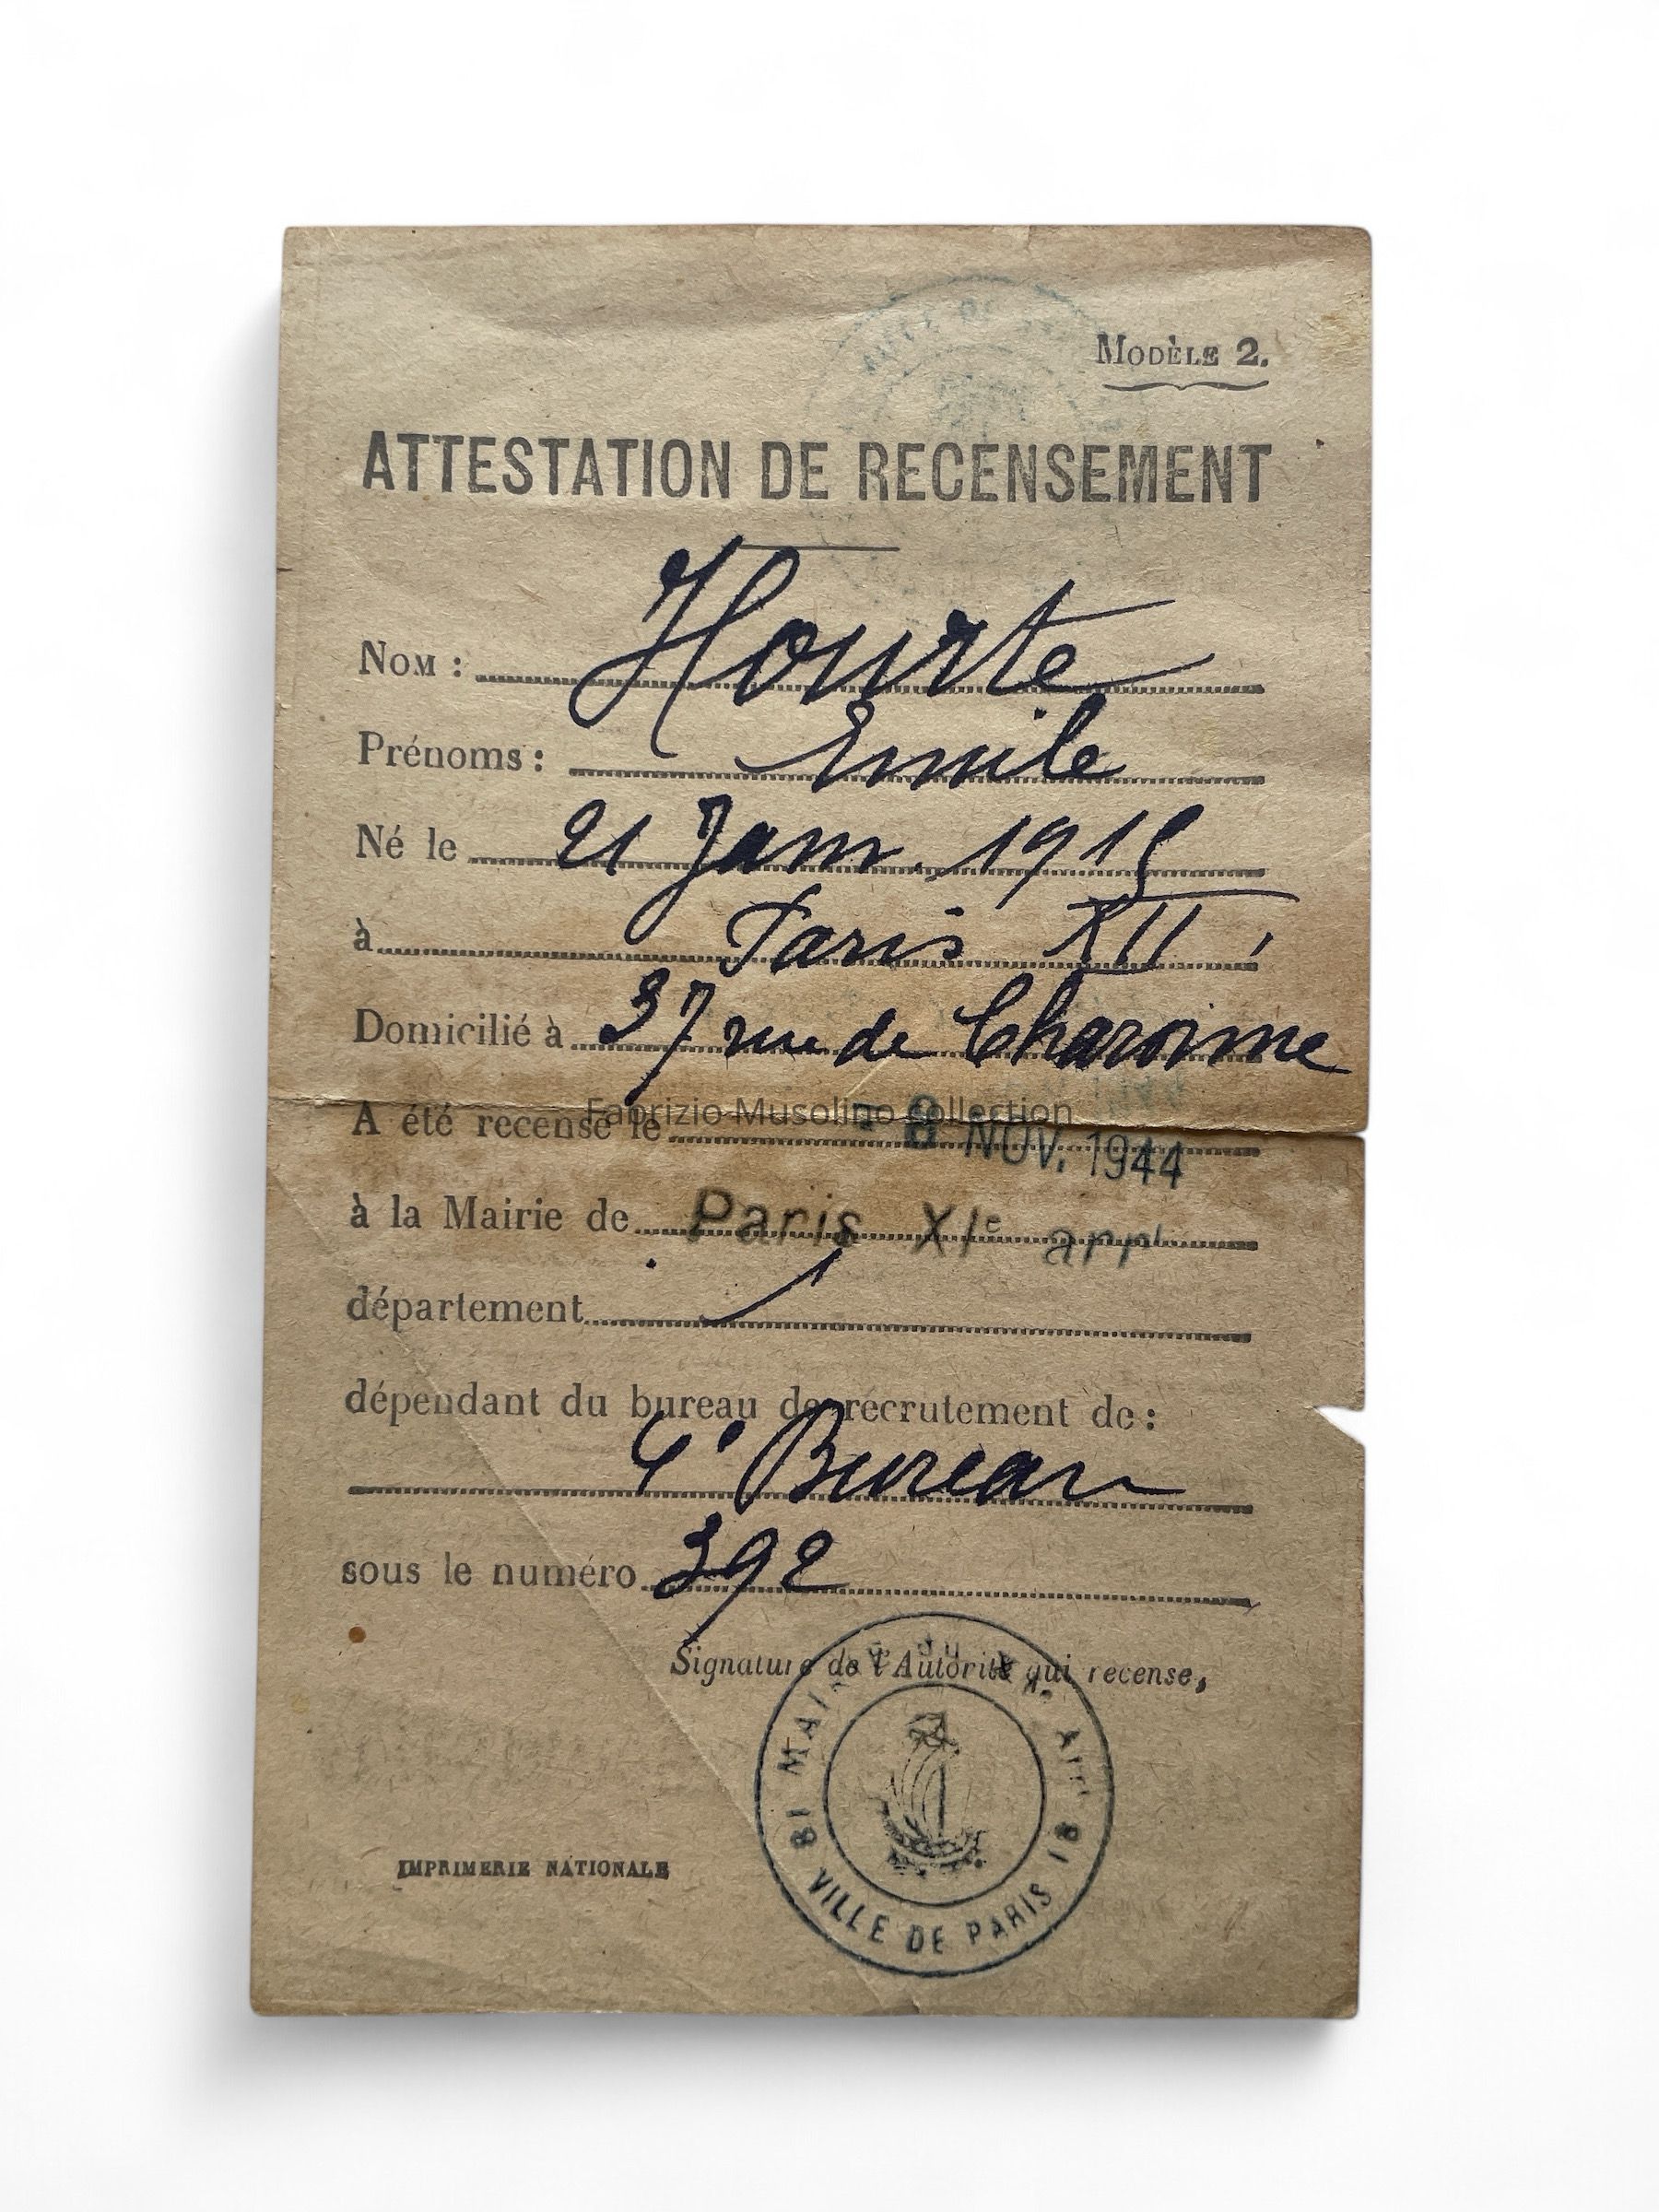 MODÈLE 2.
ATTESTATION DE RECENSEMENT
NOM : Hourte
Prénoms : Emile
Né le 21 Janv. 1915
à Paris XII
Domicilié à 37 rue de Charonne
Fabrizio Musolino collection
A été recensé le - 8 NOV. 1944
à la Mairie de Paris XIe arrt
département
dépendant du bureau de recrutement de :
Bureau
sous le numéro 392
Signature de l'Autorité qui recense,
MAIRIE DU Arrt
VILLE DE PARIS
IMPRIMERIE NATIONALE